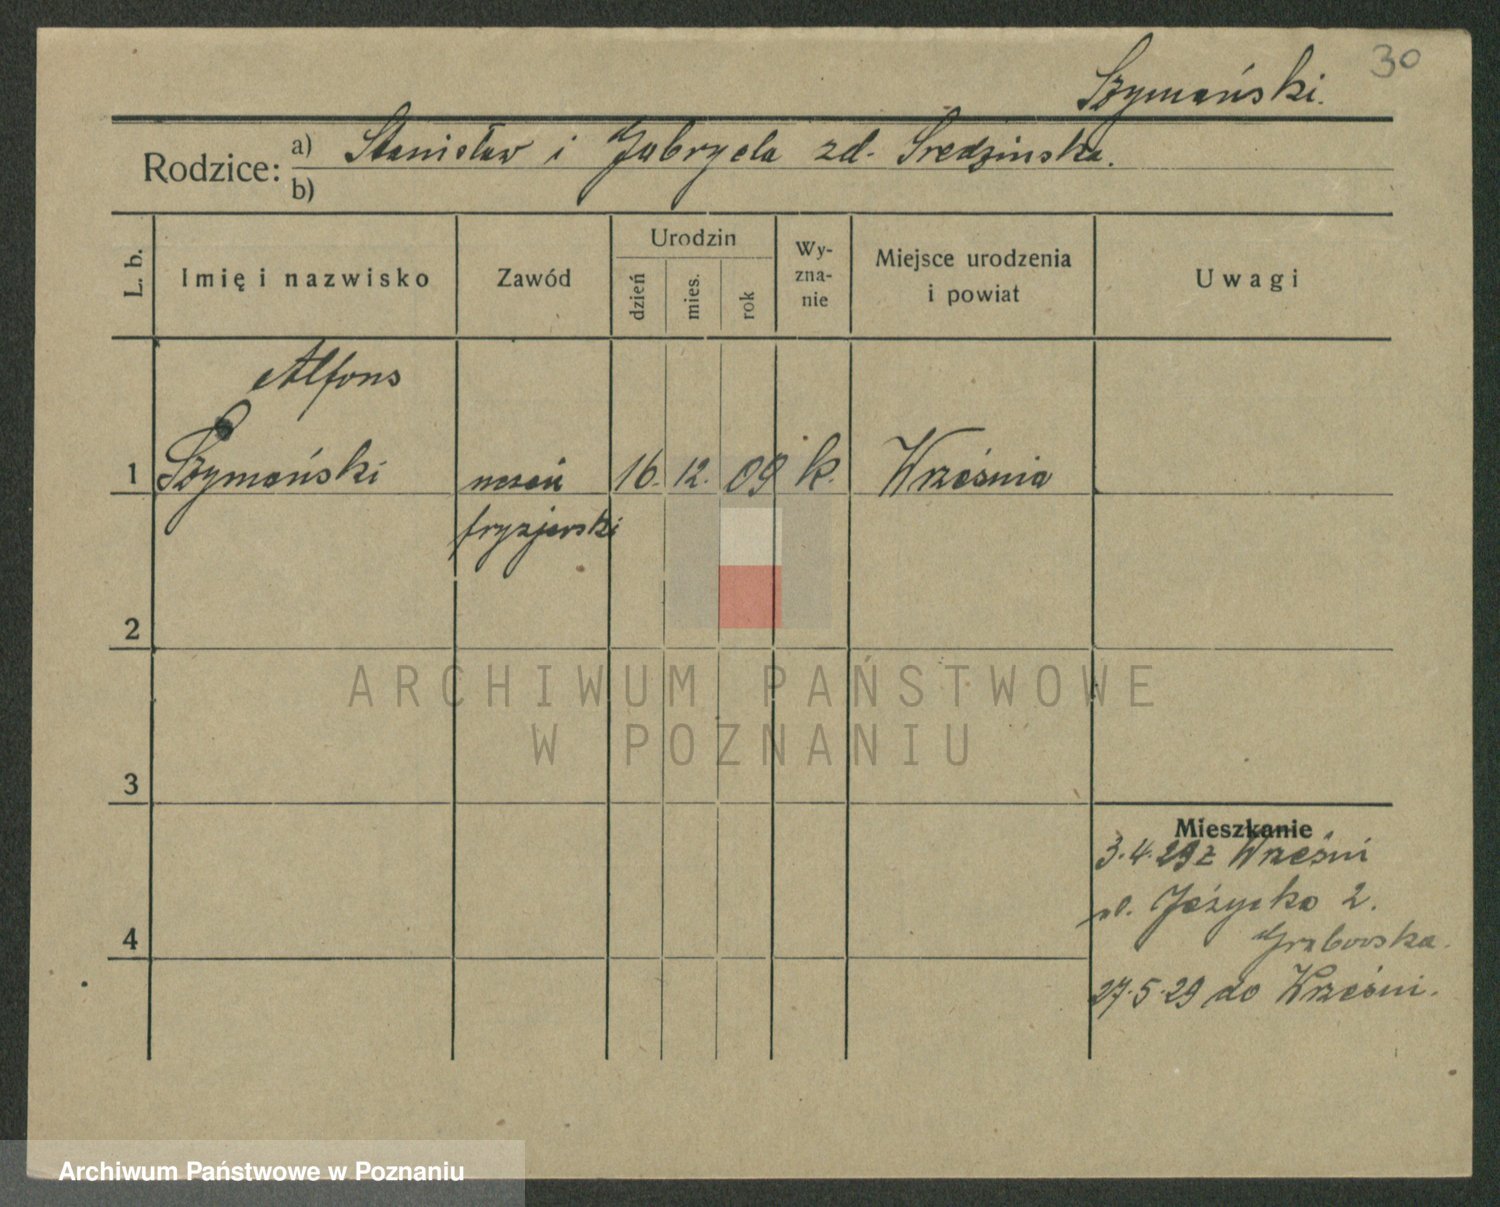 30
Szymański.
Rodzice: a) Stanisław i Gabryela zd. Sredzinska.
b)
L. b. Imię i nazwisko Zawód Urodzin dzień mies. rok Wy-zna-nie Miejsce urodzenia i powiat Uwagi
Alfons
1 Szymański uczeń 16. 12. 09 k. Września
fryzjerski
2
ARCHIWUM PAŃSTWOWE
W POZNANIU
3
Mieszkanie
3.4.29 z Wrześni
ul. Jeżycka 2.
Grabowska.
4
27.5.29 do Wrześni.
Archiwum Państwowe w Poznaniu